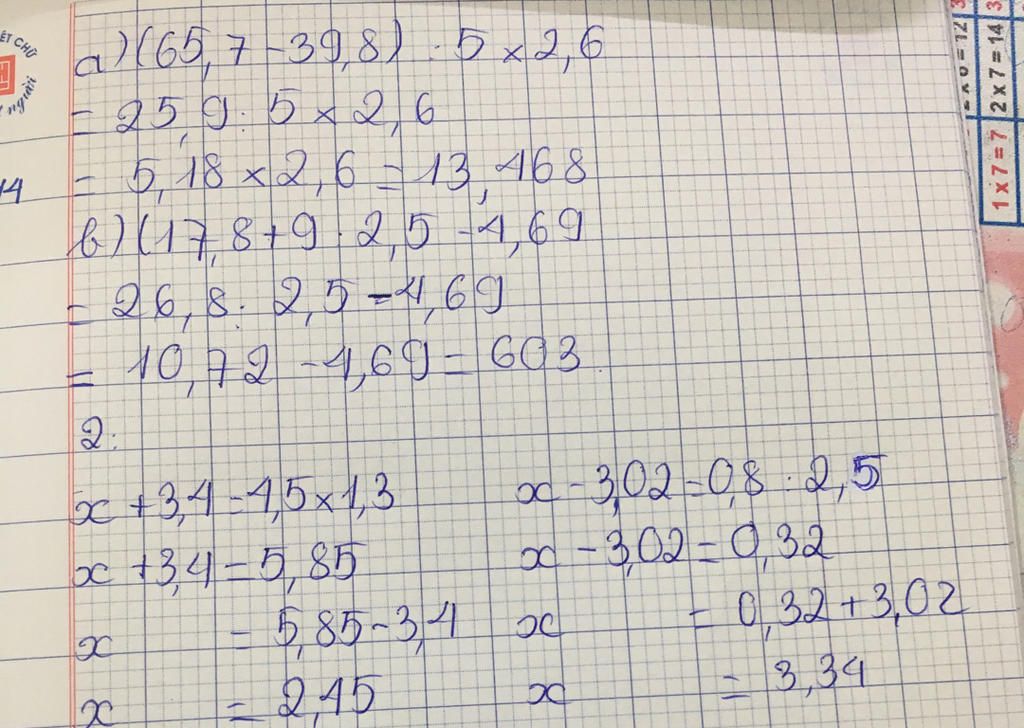 ẾT CHỮ
người
14
a) (65,7 - 39,8) : 5 x 2,6
= 25,9 : 5 x 2,6
= 5,18 x 2,6 = 13,468
b) (17,8 + 9 : 2,5 - 4,69
= 26,8 : 2,5 - 4,69
= 10,72 - 4,69 = 603
2:
x + 3,4 = 4,5 x 1,3
x + 3,4 = 5,85
x = 5,85 - 3,4
x = 2,45
x - 3,02 = 0,8 : 2,5
x - 3,02 = 0,32
x = 0,32 + 3,02
x = 3,34
1 x 7 = 7
2 x 7 = 14
3